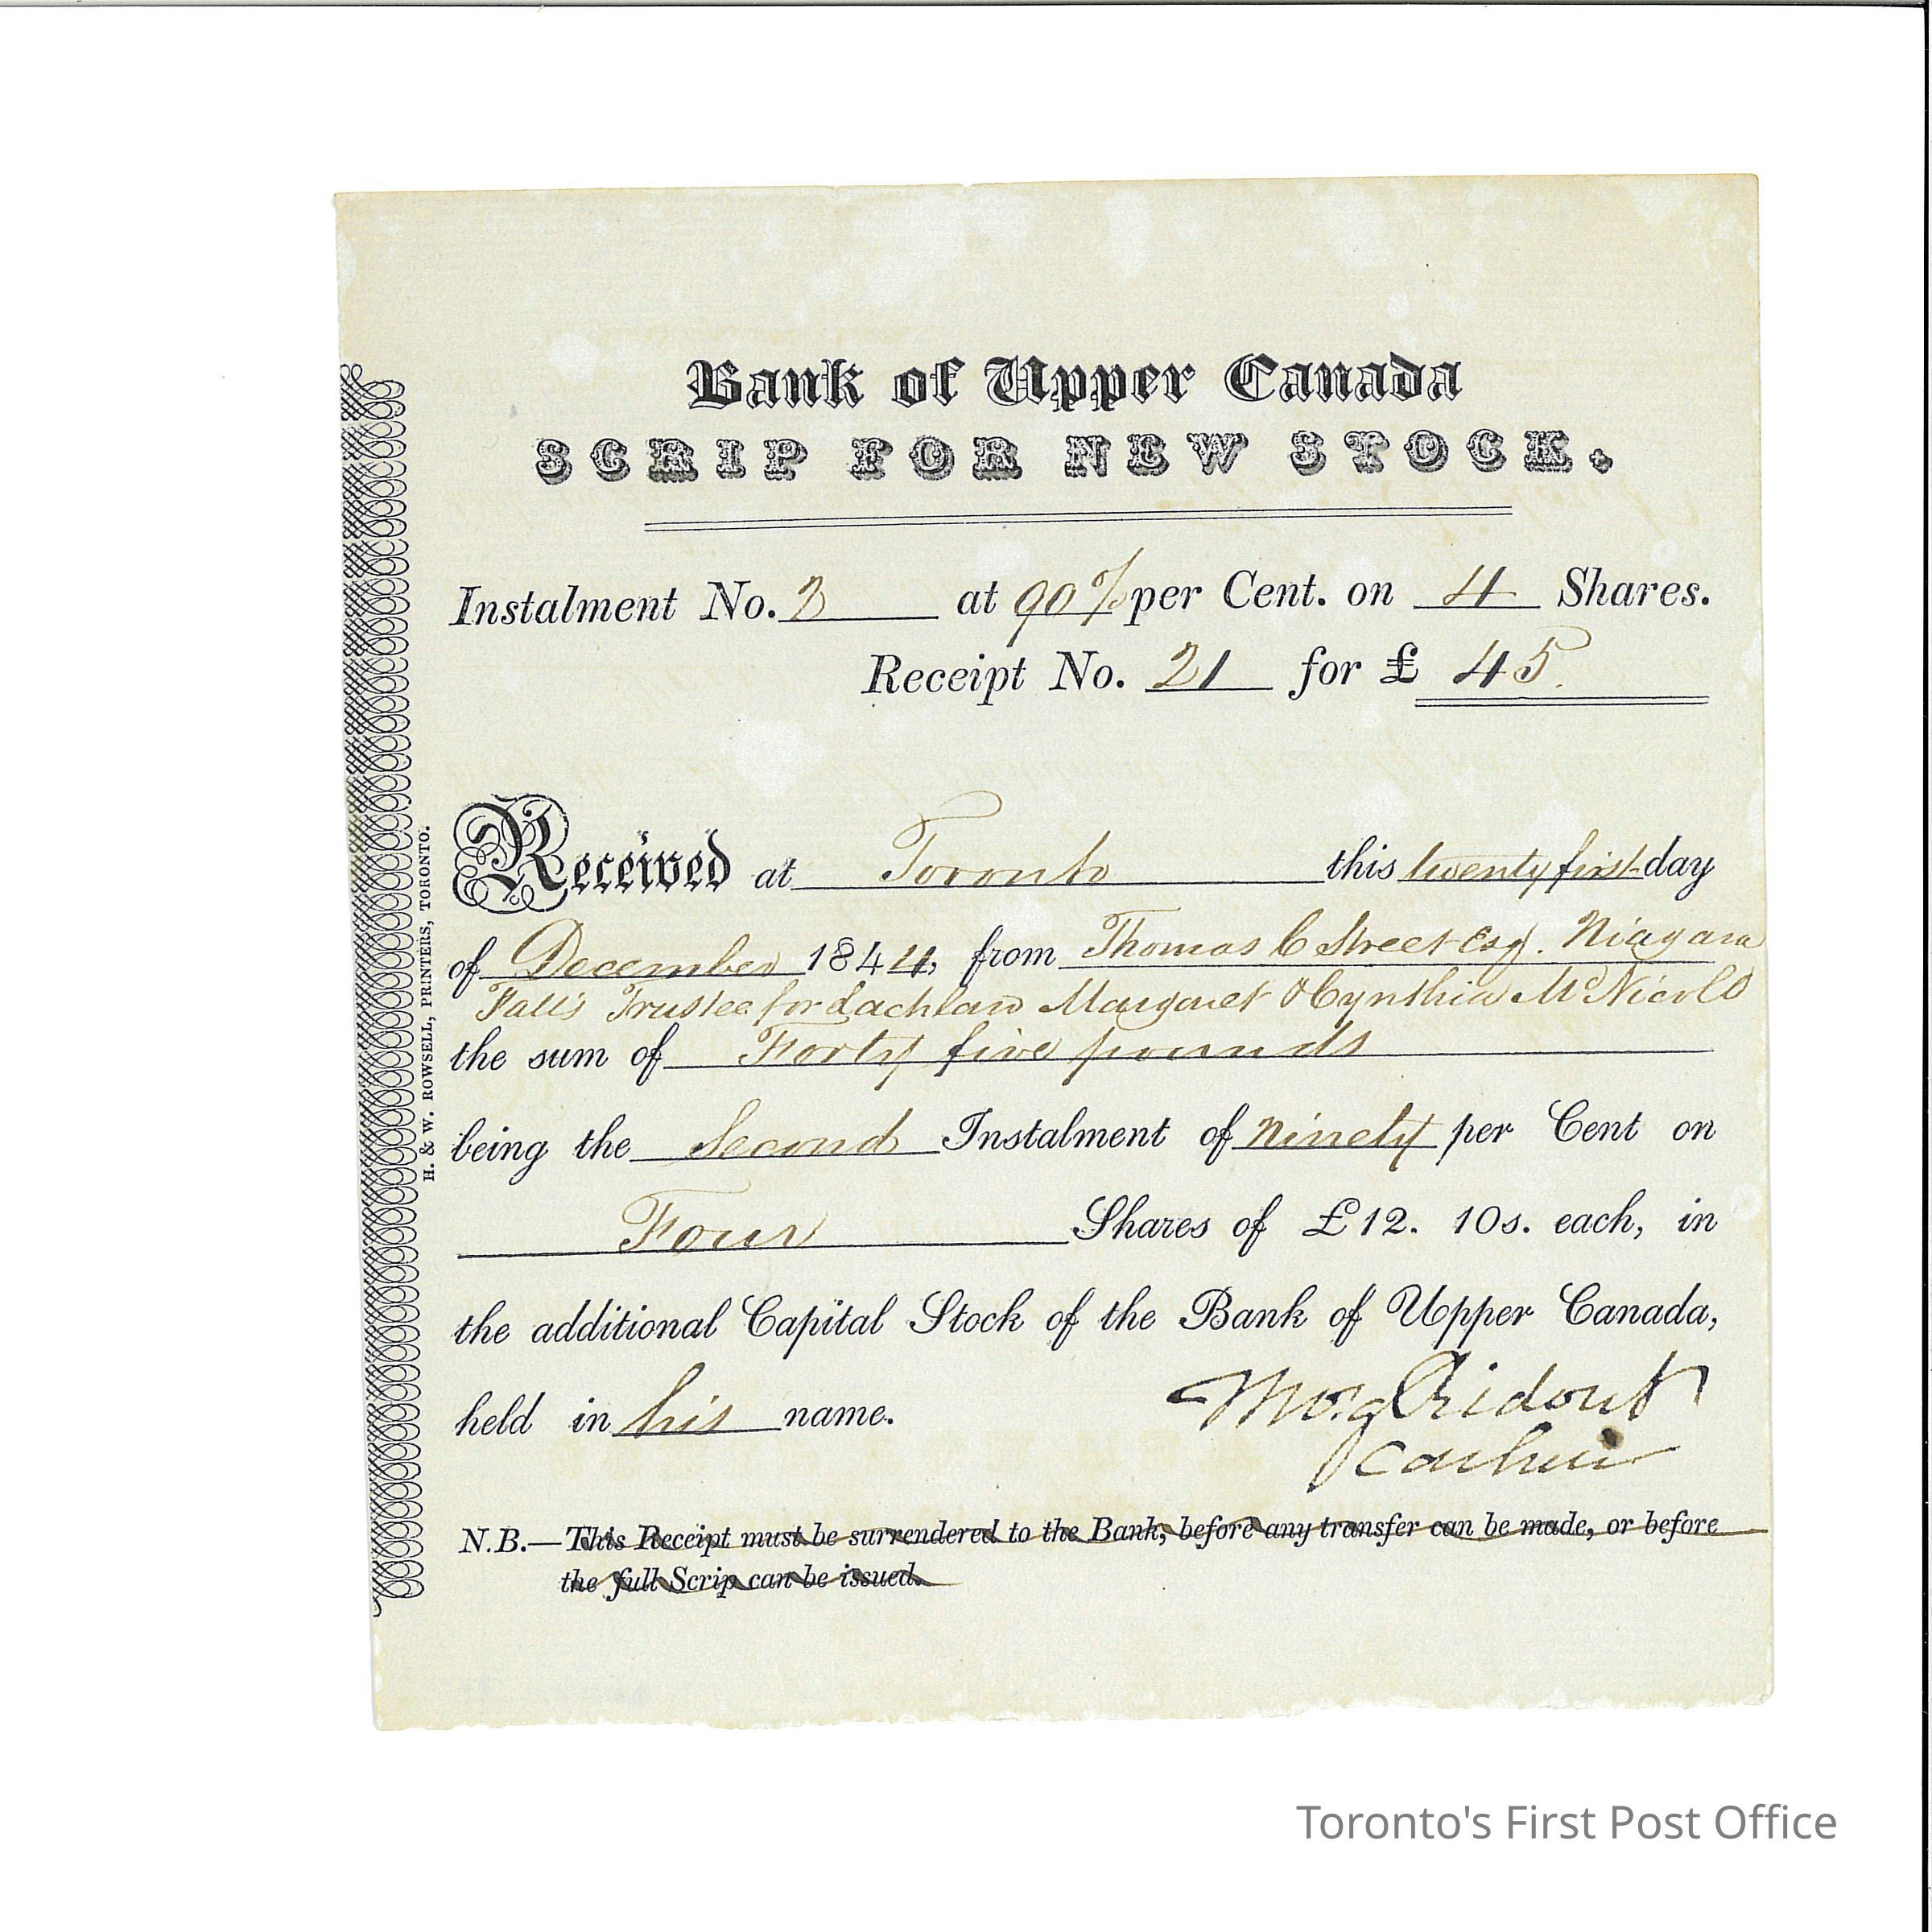 Bank of Upper Canada
SCRIP FOR NEW STOCK.
Instalment No. 2 at 90% per Cent. on 4 Shares.
Receipt No. 21 for £ 45.
Received at Toronto this twenty first day
of December 1844, from Thomas C Street Esq. Niagara
Falls Trustee for Lachlan Margaret & Cynthia McNicoll
the sum of Forty five pounds
being the Second Instalment of Ninety per Cent on
Four Shares of £12. 10s. each, in
the additional Capital Stock of the Bank of Upper Canada,
held in his name.
Thos. G Ridout
Cashier
N.B.—This Receipt must be surrendered to the Bank, before any transfer can be made, or before
the full Scrip can be issued.
H. & W. ROWSELL, PRINTERS, TORONTO.
Toronto's First Post Office